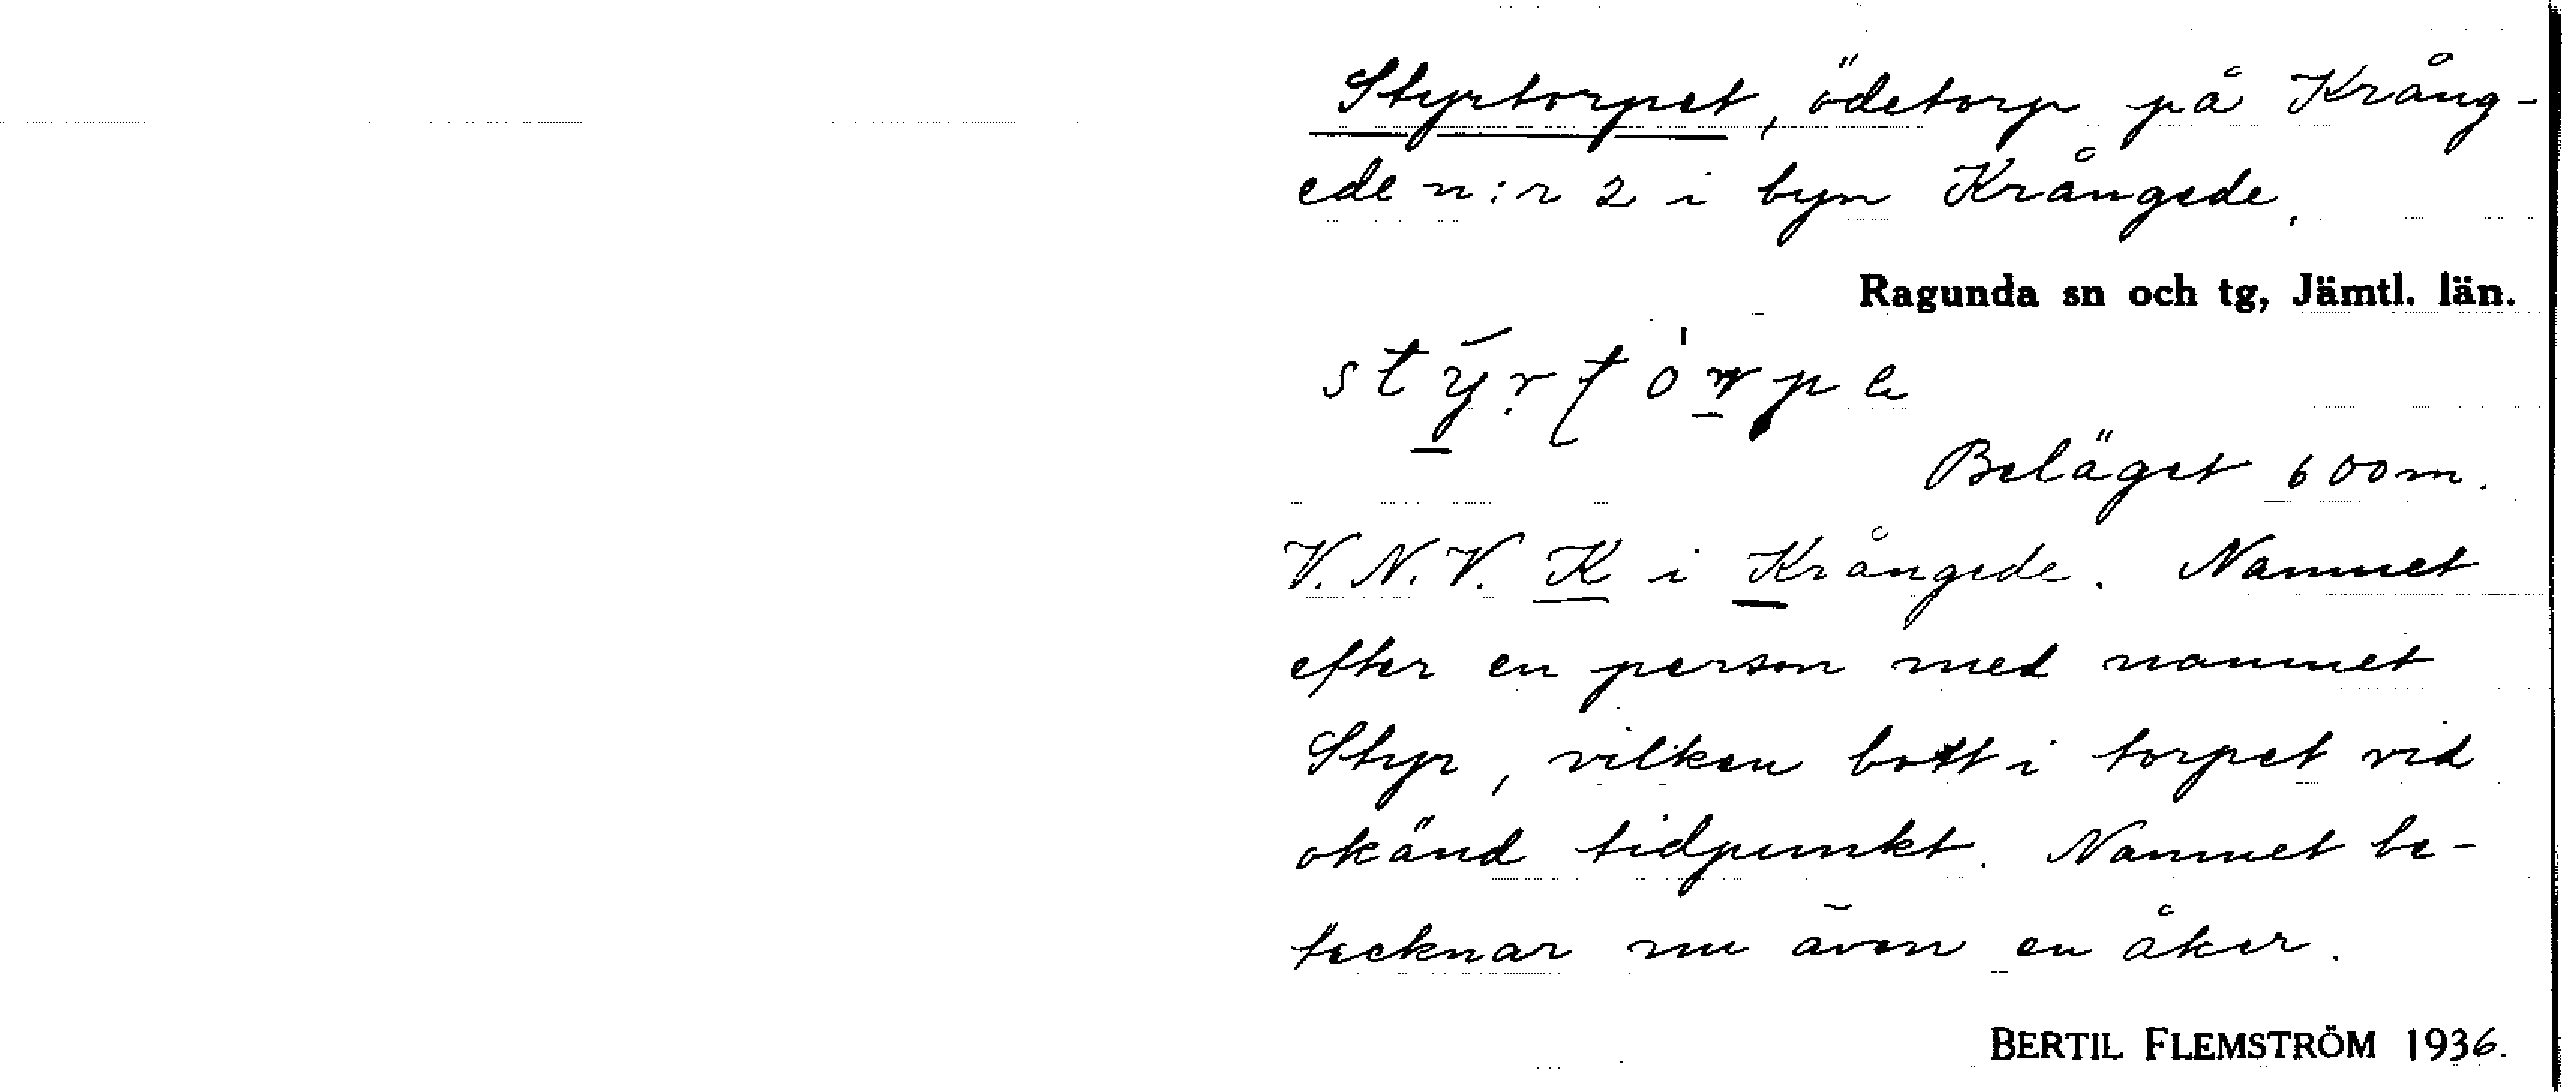 Styrtorpet, ödetorp på Krång-
ede n:r 2 i byn Krångede.
Ragunda sn och tg, Jämtl. län.
Beläget 600 m.
V.N.V. K i Krångede. Namnet
efter en person med namnet
Styr, vilken bott i torpet vid
okänd tidpunkt. Namnet be-
tecknar nu även en åker.
BERTIL FLEMSTRÖM 1936.